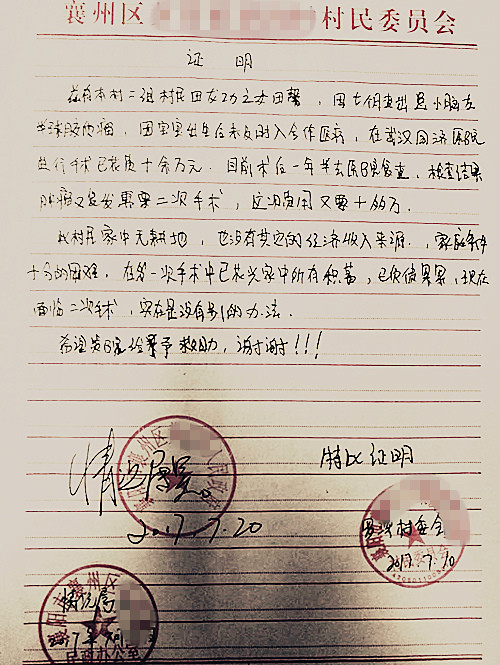 襄州区 村民委员会
证 明
兹有本村二组村民田友功之女田馨，因七月查出患小脑左
半球胶质瘤，因害患出生后未及时入合作医疗，在武汉同济医院
进行手术已花费十余万元。目前术后一年半去医院复查，检查结果
肿瘤又复发需要二次手术，这次费用又要十多万。
此村民家中无耕地，也没有其它的经济收入来源，家庭条件
十分的困难，在第一次手术中已花光家中所有积蓄，已负债累累，现在
面临二次手术，实在是没有别的办法。
希望贵院给予救助，谢谢!!!
特此证明
情况属实。
2017.7.20
村委会
2017.7.10
襄阳市襄州区
情况属
民政办公室